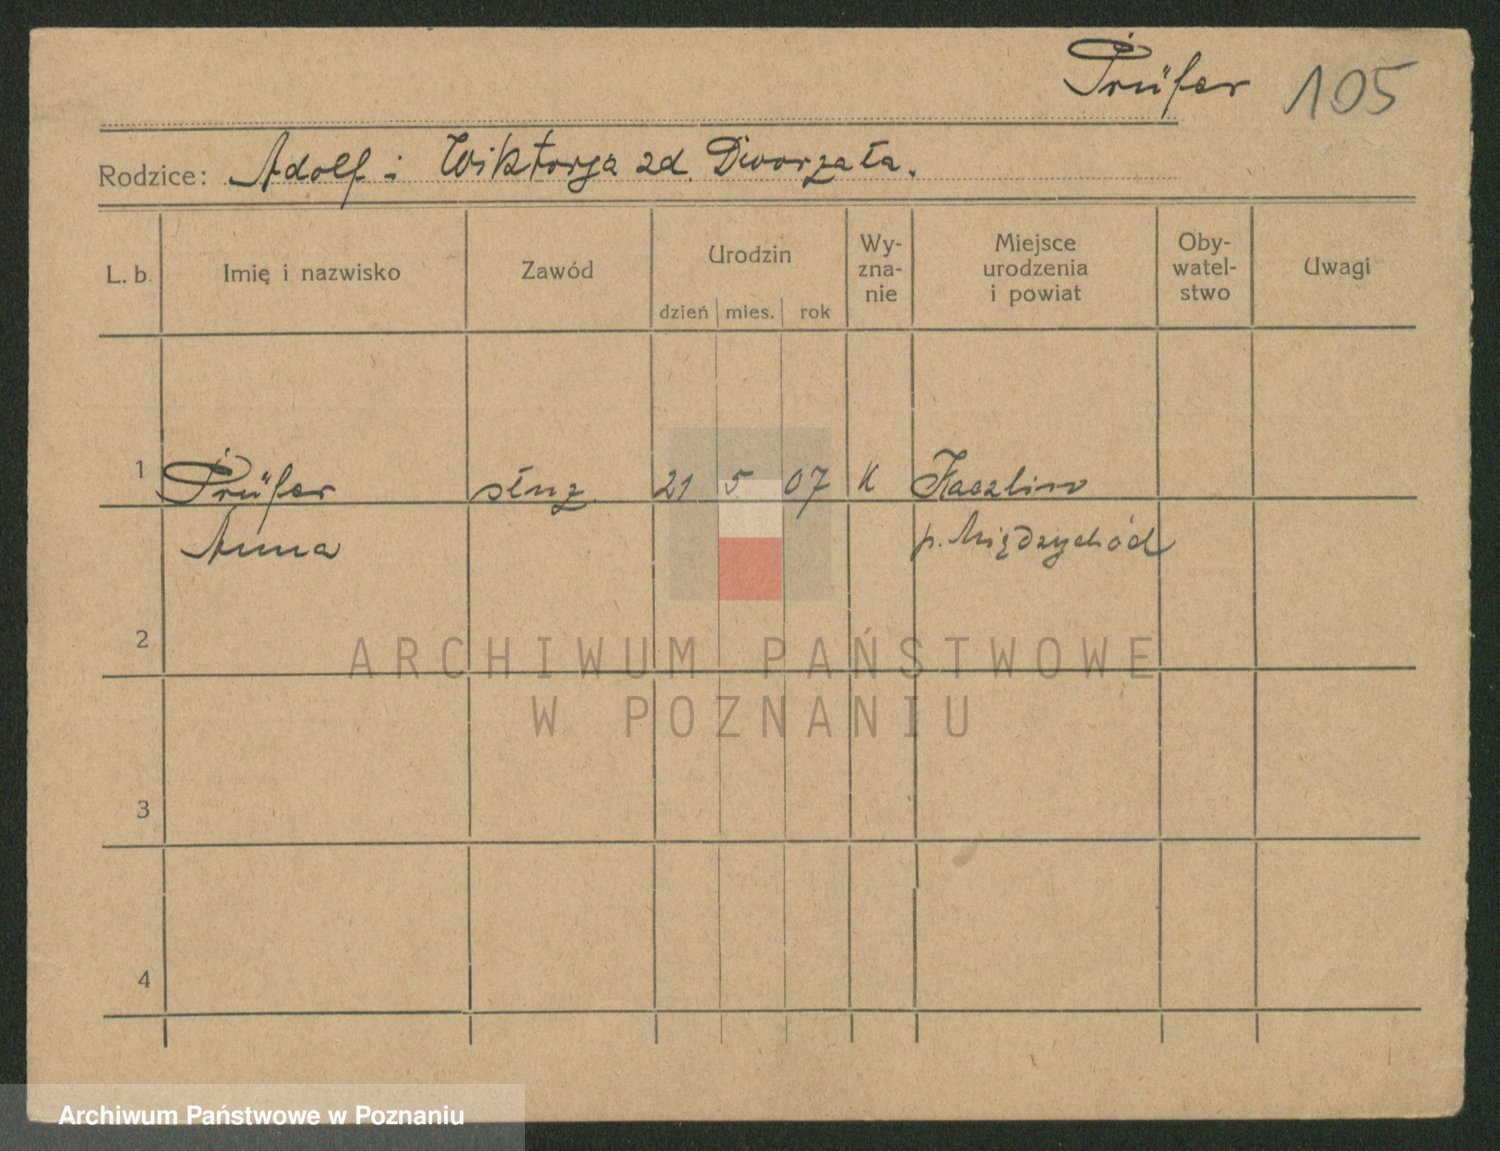 Prüfer 105
Rodzice: Adolf i Wiktorja zd. Dworzała.
L. b. Imię i nazwisko Zawód Urodzin Wy-zna-nie Miejsce urodzenia i powiat Oby-watel-stwo Uwagi
dzień mies. rok
1 Prüfer służ. 21 5 07 K Kaczlin
Anna p. Międzychód
2
ARCHIWUM PAŃSTWOWE
W POZNANIU
3
4
Archiwum Państwowe w Poznaniu